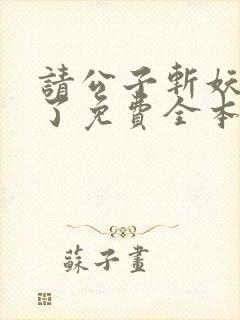 請公子斬妖
了免費全本
蘇子畫